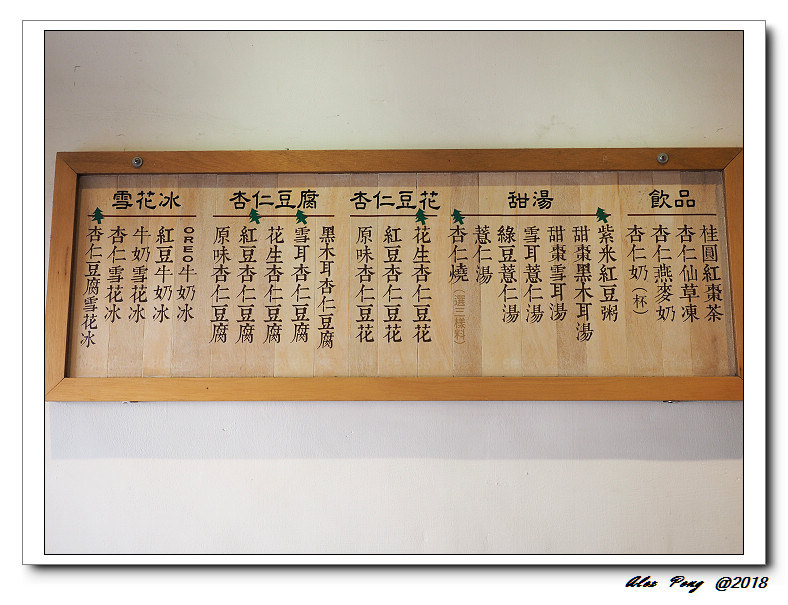 飲品
桂圓紅棗茶
杏仁仙草凍
杏仁燕麥奶
杏仁奶(杯)
甜湯
紫米紅豆粥
甜棗黑木耳湯
甜棗雪耳湯
雪耳薏仁湯
綠豆薏仁湯
薏仁湯
杏仁燒(選三樣料)
杏仁豆花
花生杏仁豆花
紅豆杏仁豆花
原味杏仁豆花
杏仁豆腐
黑木耳杏仁豆腐
雪耳杏仁豆腐
花生杏仁豆腐
紅豆杏仁豆腐
原味杏仁豆腐
雪花冰
OREO牛奶冰
紅豆牛奶冰
牛奶雪花冰
杏仁雪花冰
杏仁豆腐雪花冰
Alex Peng @2018